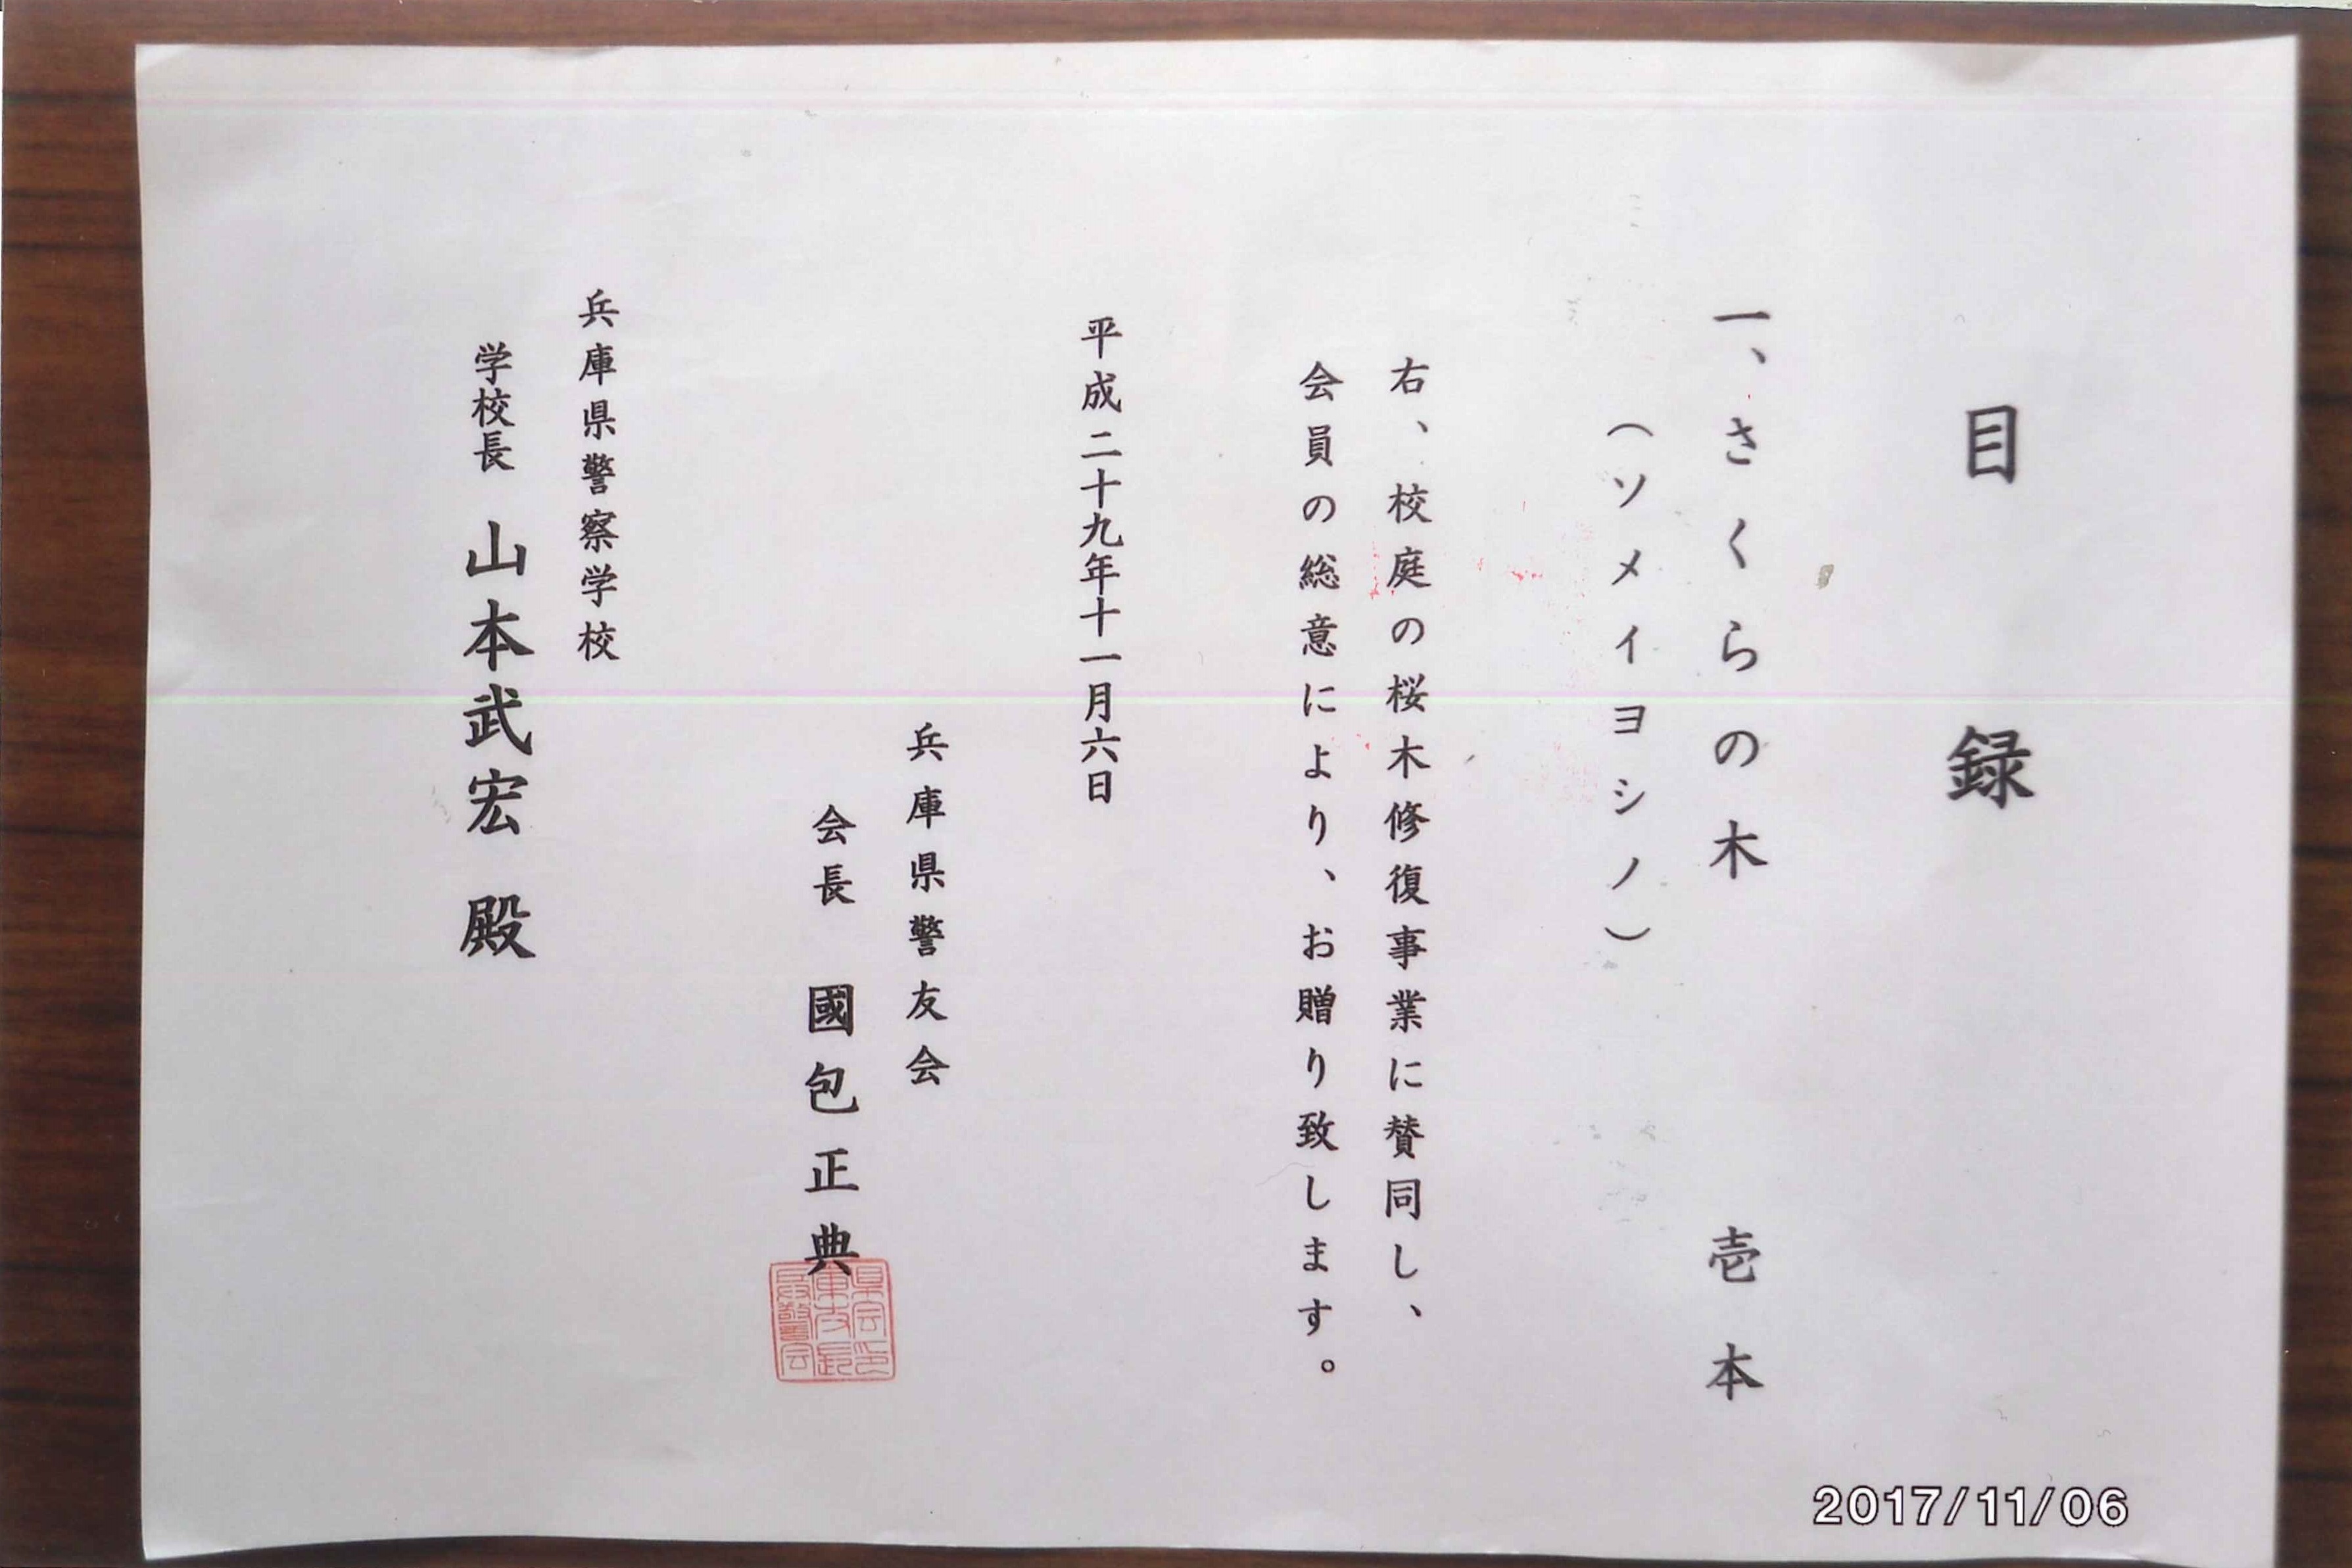 目録
一、さくらの木　壱本
（ソメイヨシノ）
右、校庭の桜木修復事業に賛同し、
会員の総意により、お贈り致します。
平成二十九年十一月六日
兵庫県警友会
会長　國包正典
兵庫県警察学校
学校長　山本武宏　殿
2017/11/06